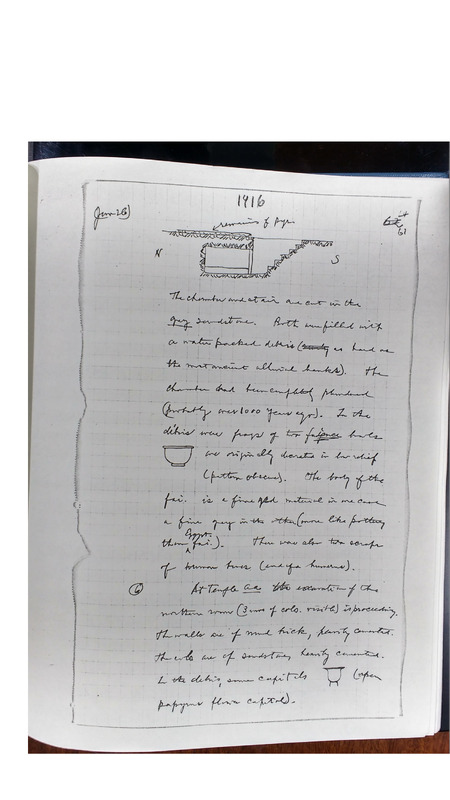 1916
Jan 26)
remains of pyr.
N
S
The chamber and stair are cut in the
grey sandstone. Both were filled with
a water packed debris as hard as
the most ancient alluvial banks). The
chamber had been completely plundered
(probably over 1000 years ago). In the
debris were frags of two faience bowls
one originally decorated in low relief
(pattern obscure). The body of the
fai. is a fine material in one case
a fine grey in the other (more like pottery
than Egypt. fai.). There were also two scraps
of human bones (end of a humerus).
6 At Temple the excavation of the
northern room (3 rows of cols. visible) is proceeding.
The walls are of mud brick, faintly cemented.
The cols are of sandstone, heavily cemented.
In the debris, some capitals (open
papyrus flower capitals).